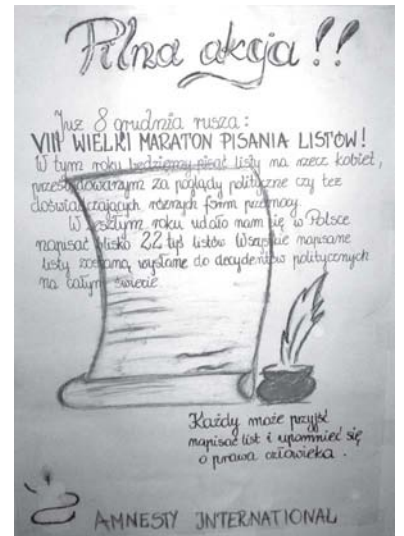 Pilna akcja!!
Już 8 grudnia rusza:
VIII WIELKI MARATON PISANIA LISTÓW!
W tym roku będziemy pisać listy na rzecz kobiet,
prześladowanym za poglądy polityczne czy też
doświadczających różnych form przemocy.
W zeszłym roku udało nam się w Polsce
napisać blisko 22 tyś listów. Wszystkie napisane
listy zostaną wysłane do decydentów politycznych
na całym świecie
Każdy może przyjść
napisać list i upomnieć się
o prawa człowieka.
AMNESTY INTERNATIONAL